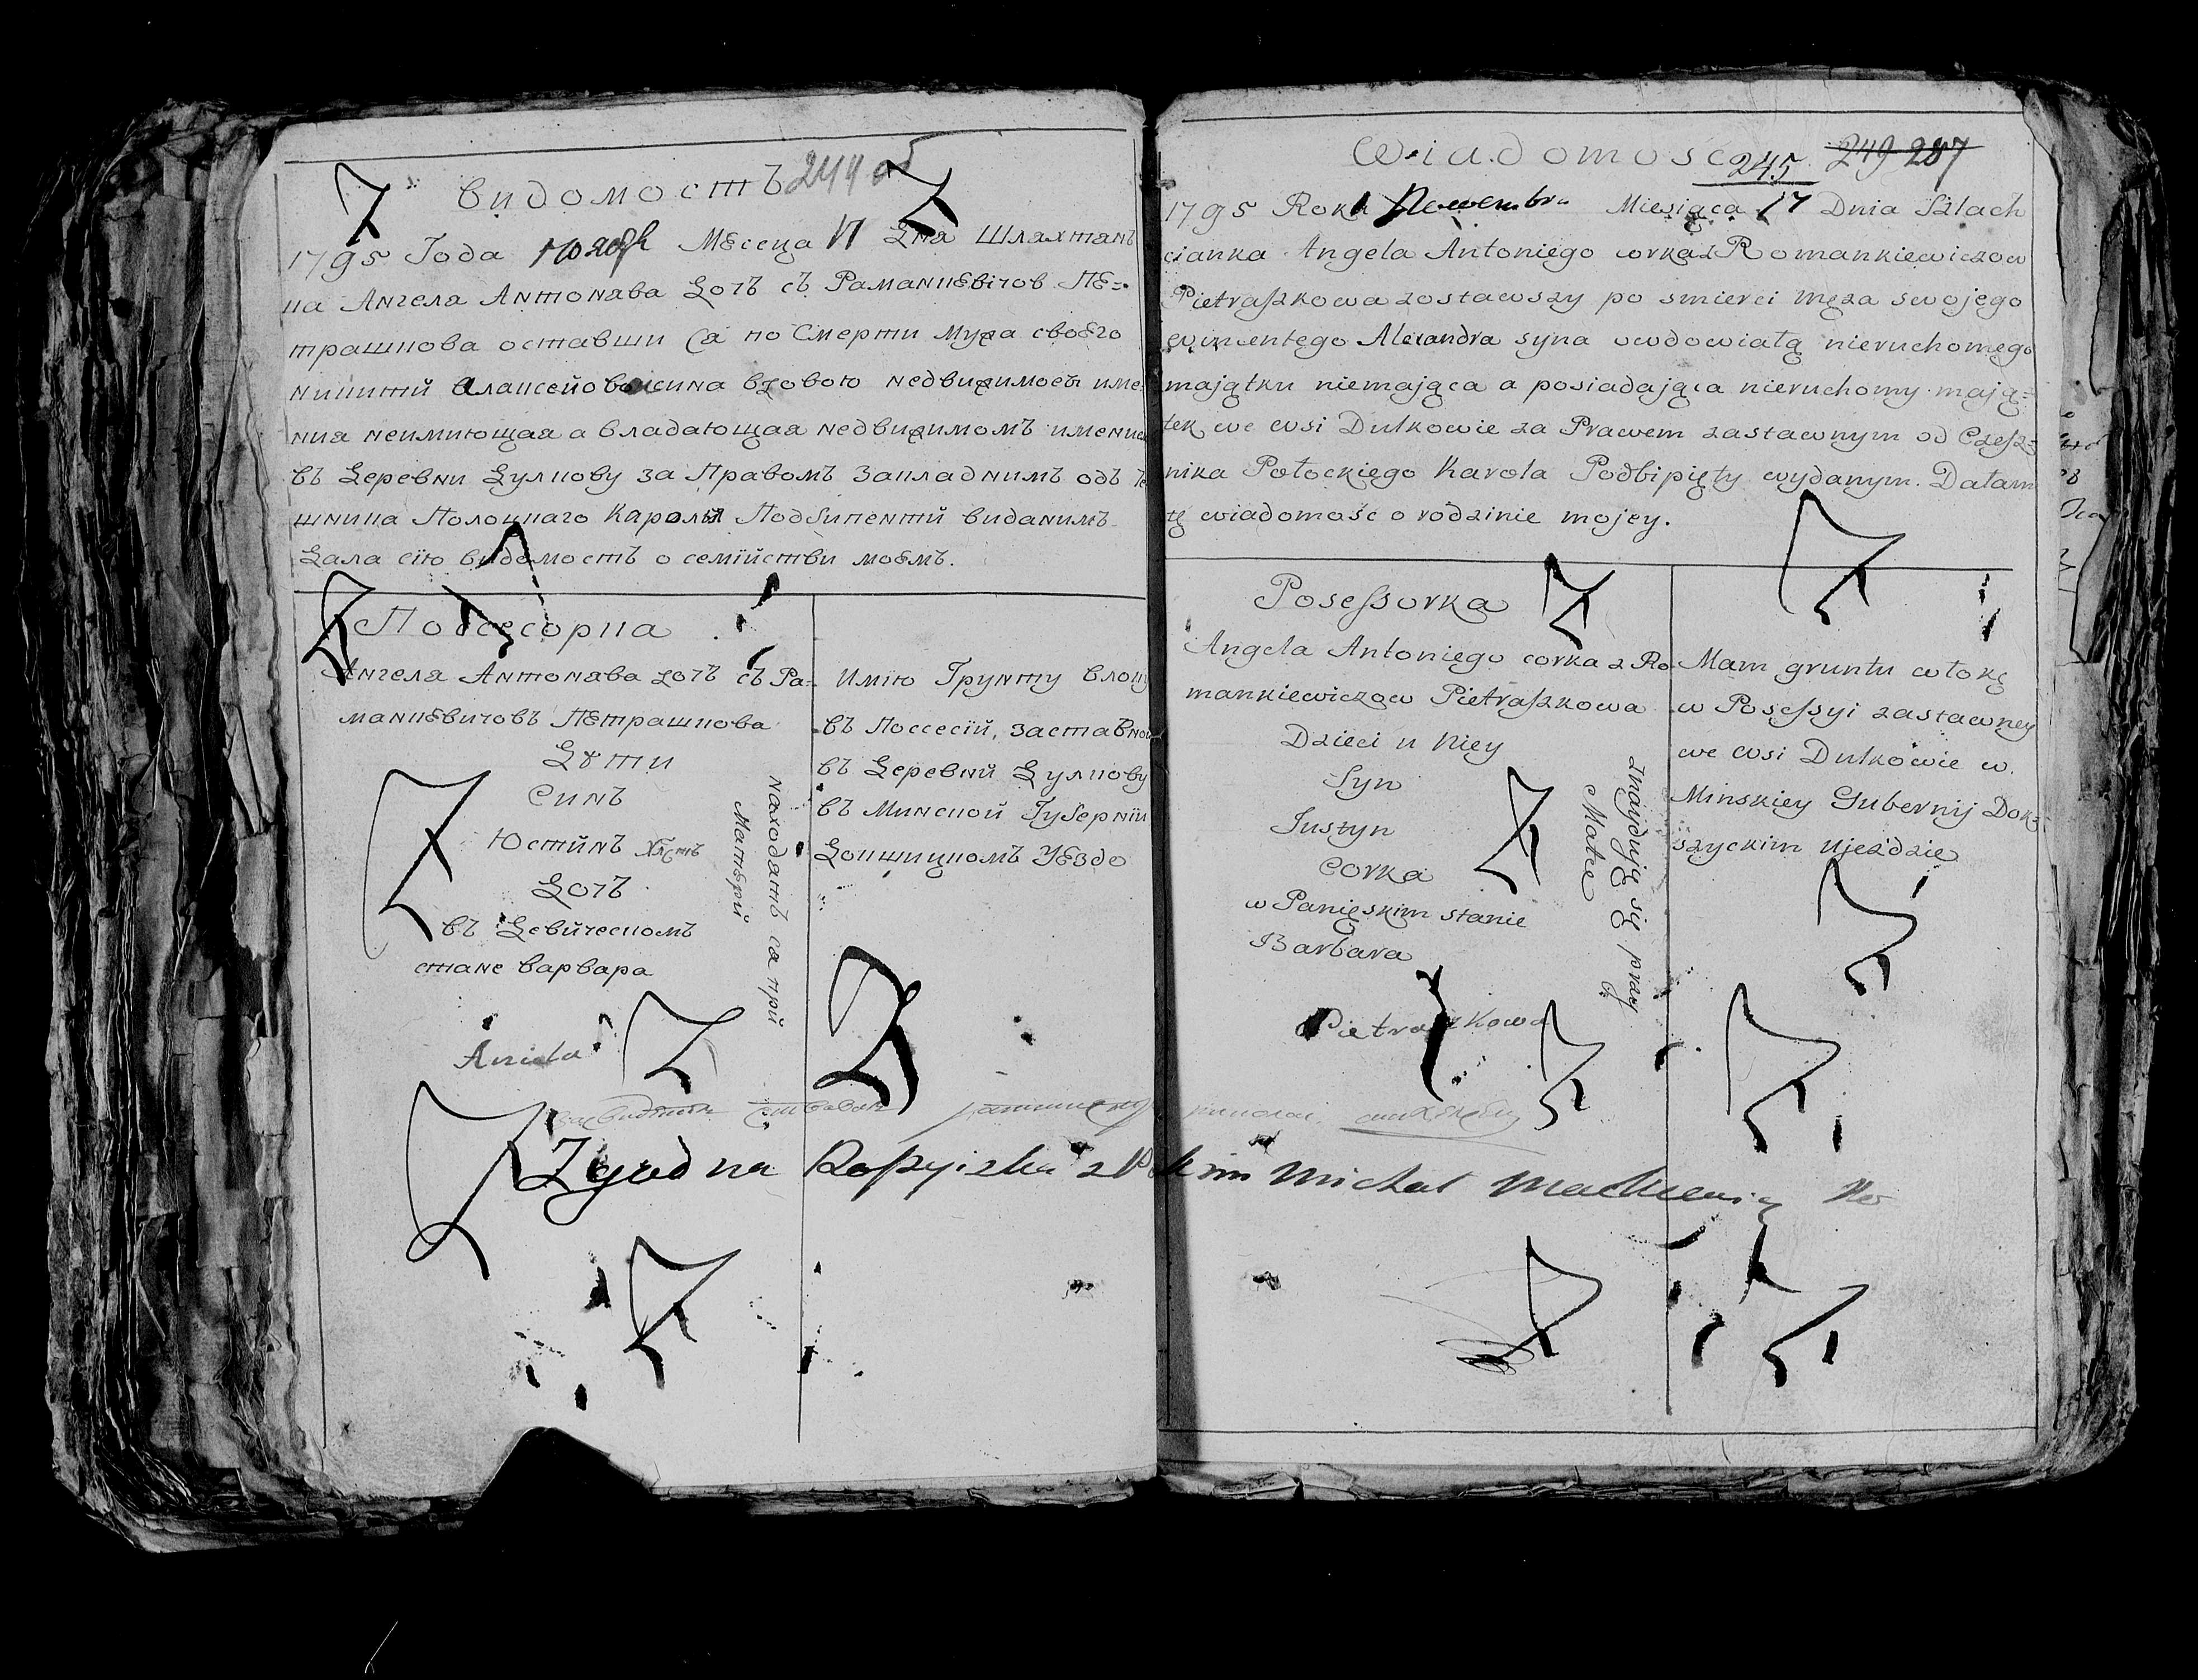 Видомость 244 об
1795 Года ноябр Месеца 17 Дня Шляхтян
ка Ангела Антонява доч съ Раманкевичов Пе=
трашкова оставши ся по Смерти мужа своего
Алаксейова сина вдовою недвижимоси име
ния неимиющая а владающая недвижимомъ имение
въ Деревни Дулкову за Правомъ Закладнимъ одъ
шника Полоцкаго Кароля Подбипенти виданимъ
Дала сію видомость о семійстви моемъ.
Поссесорка
Ангела Антонява дочъ съ Ра-
манкевичовъ Петрашкова
Дѣти
Синъ
Юстинъ
Дочъ
въ Девическомъ
стане Варвара
находятъ ся при
Матерій
Имію Грунту влоку
въ Поссесій, заставной
въ Деревни Дулкову
въ Минской Губерніи
Докшицкомъ Уезде
Aniela
Wiadomosc 245 249 287
1795 Roku Nowembra Miesiąca 17 Dnia Szlach
cianka Angela Antoniego corka z Romankiewiczow
Pietraszkowa zostawszy po smierci męza swojego
Wincentego Alexandra syna owdowiałą nieruchomego
majątku niemająca a posiadająca nieruchomy mają=
tek we wsi Dulkowie za Prawem zastawnym od Czesz=
nika Połockiego Karola Podbipięty wydanym. Dałam
tę wiadomośc o rodzinie mojey.
Posessorka
Angela Antoniego corka z Ro-
mankiewiczow Pietraszkowa
Dzieci u Niey
Syn
Justyn
Corka
w Panięskim stanie
Barbara
znayduję się przy
Matce
Mam gruntu włokę
w Posessyi zastawney
we wsi Dulkowie w
Minskiey Gubernij Dok=
szyckim ujezdzie
Pietraszkowa
Zgodna Kopyizka z Michał Mackiewicz